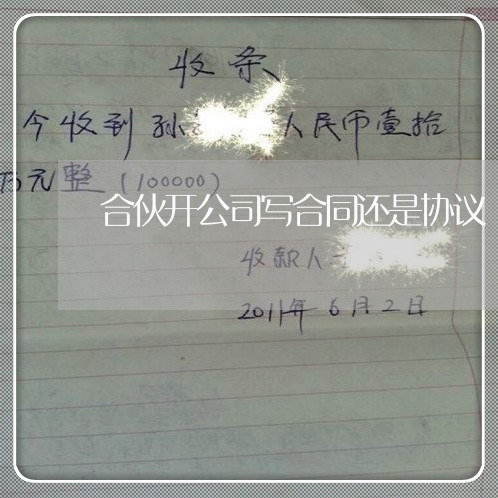 收条
今收到孙 人民币壹拾
万元整(100000)
合伙开公司写合同还是协议
收款人
2011年6月2日